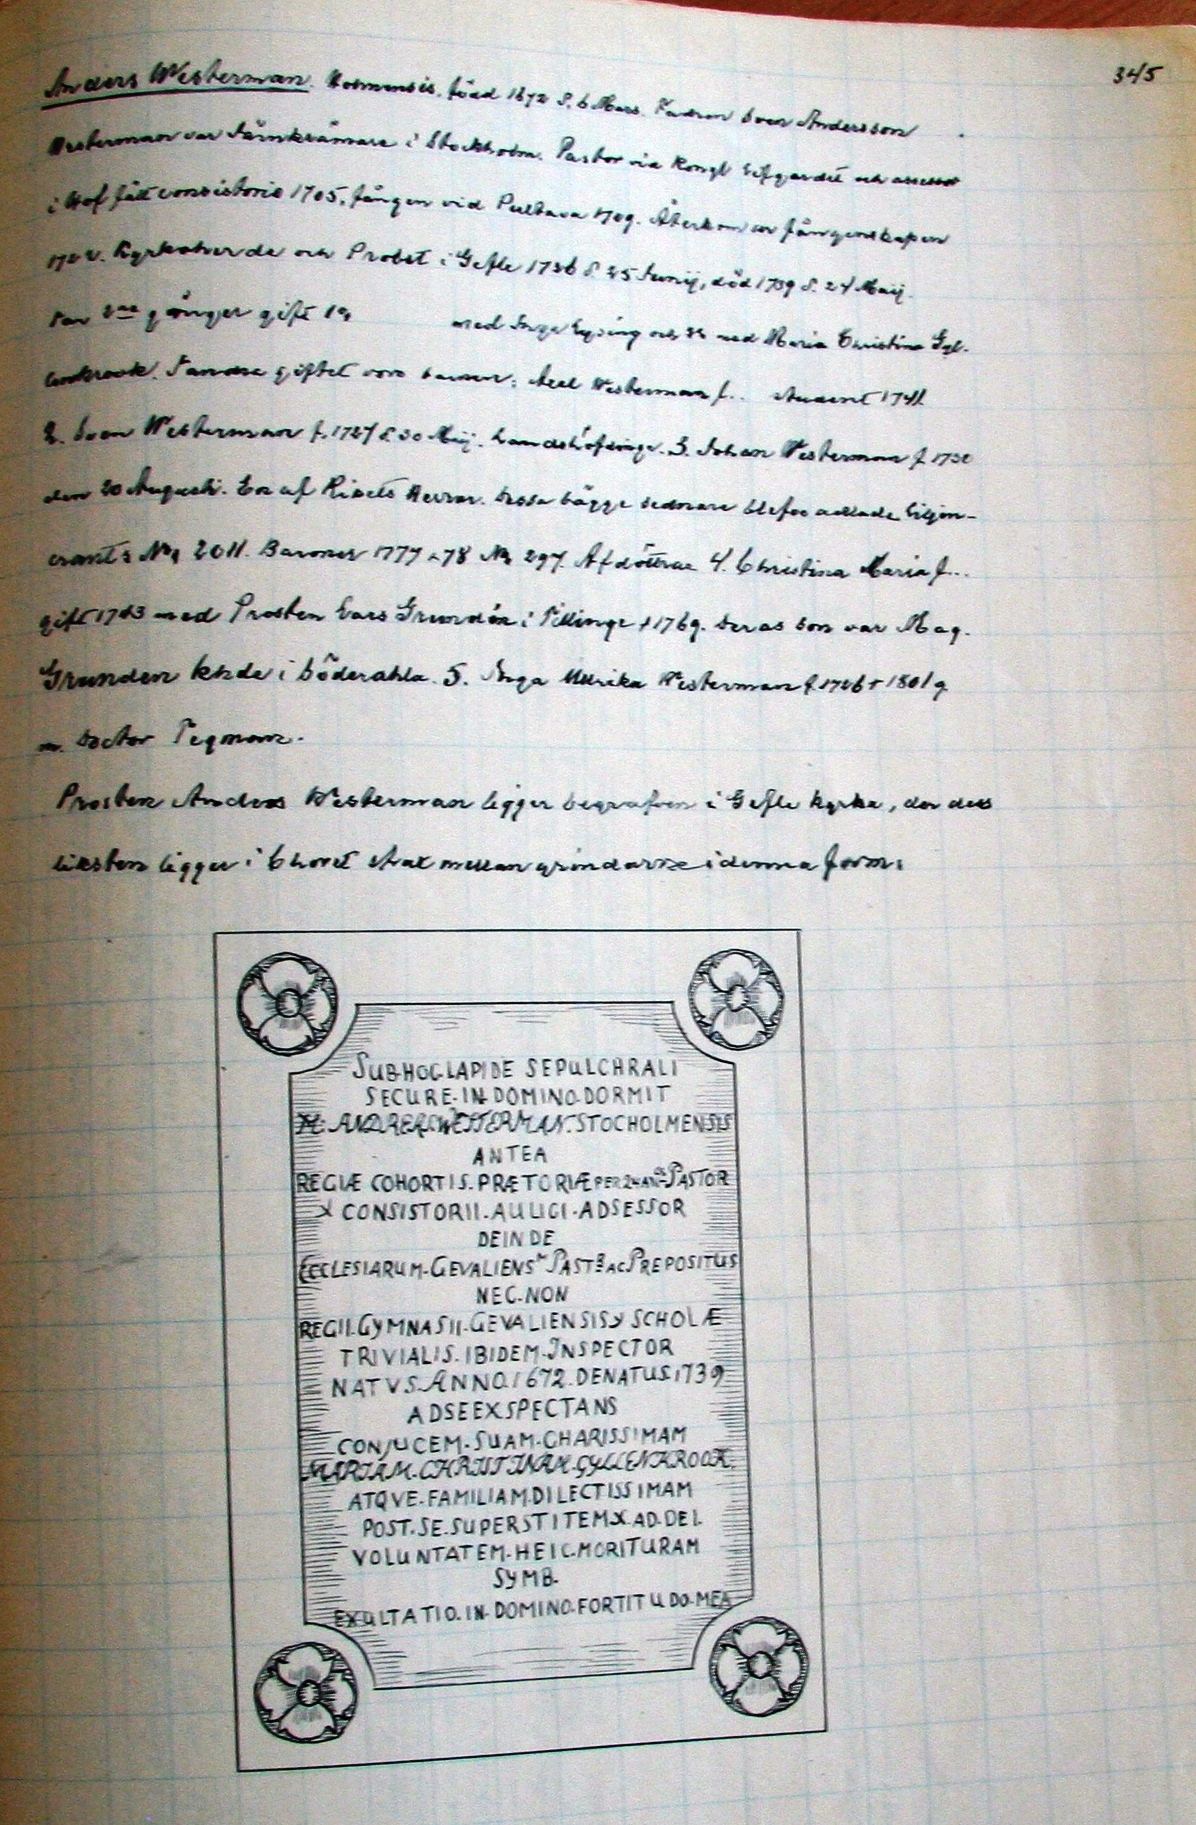 345
Anders Westerman. Holmensis, född 1672 d. 6 Mars. Fadren Sven Andersson
Westerman var Järnkrämare i Stockholm. Pastor vid Kongl Lifgardet och assessor
i Hof consistorio 1705, fången vid Pultava 1709. Återkom ur fångenskapen
1722. Kyrkoherde och Probst i Gefle 1726 d. 25 Junij, död 1739 d. 24 Maij.
Var 2ne gånger gift 1° med Inga och 2° med Maria Christina Gyl-
lenkrook. I andra giftet voro barnen: Axel Westerman f.. Student 1741
2. Sven Westerman f. 1727 d. 30 Maij. Landshöfdinge. 3. Johan Westerman f 1730
den 20 Augusti. En af Rikets Herrar. Dessa bägge sednare blefvo adlade Liljen-
crants No 2011. Baroner 1777 78 No 297. Af döttrar 4. Christina Maria f...
gift 1743 med Prosten Lars Grundén i Tillinge + 1769. Deras son var Mag.
Grunden khde i Söderahla. 5. Inga Ullrika Westerman f 1726 + 1801 g
m. Doctor Tegman.
Prosten Anders Westerman ligger begrafven i Gefle kyrka, der dess
liksten ligger i Choret strax mellan grindarne i denna form:
SUB·HOC·LAPIDE SEPULCHRALI
SECURE·IN·DOMINO·DORMIT
M. ANDREAS·WESTERMAN·STOCHOLMENSIS
ANTEA
REGIÆ COHORTIS·PRÆTORIÆ PER 24 AN PASTOR
& CONSISTORII·AULICI·ADSESSOR
DEINDE
ECCLESIARUM·GEVALIENSM PASTR AC PREPOSITUS
NEC·NON
REGII·GYMNASII·GEVALIENSIS & SCHOLÆ
TRIVIALIS·IBIDEM·INSPECTOR
NATVS·ANNO·1672·DENATUS·1739
AD SE EXSPECTANS
CONJUCEM·SUAM·CHARISSIMAM
MARIAM·CHRISTINAM·GYLLENKROOK·
ATQVE·FAMILIAM·DILECTISSIMAM
POST·SE·SUPERSTITEM & AD·DEI·
VOLUNTATEM·HEIC·MORITURAM
SYMB·
EXULTATIO·IN·DOMINO·FORTITUDO·MEA